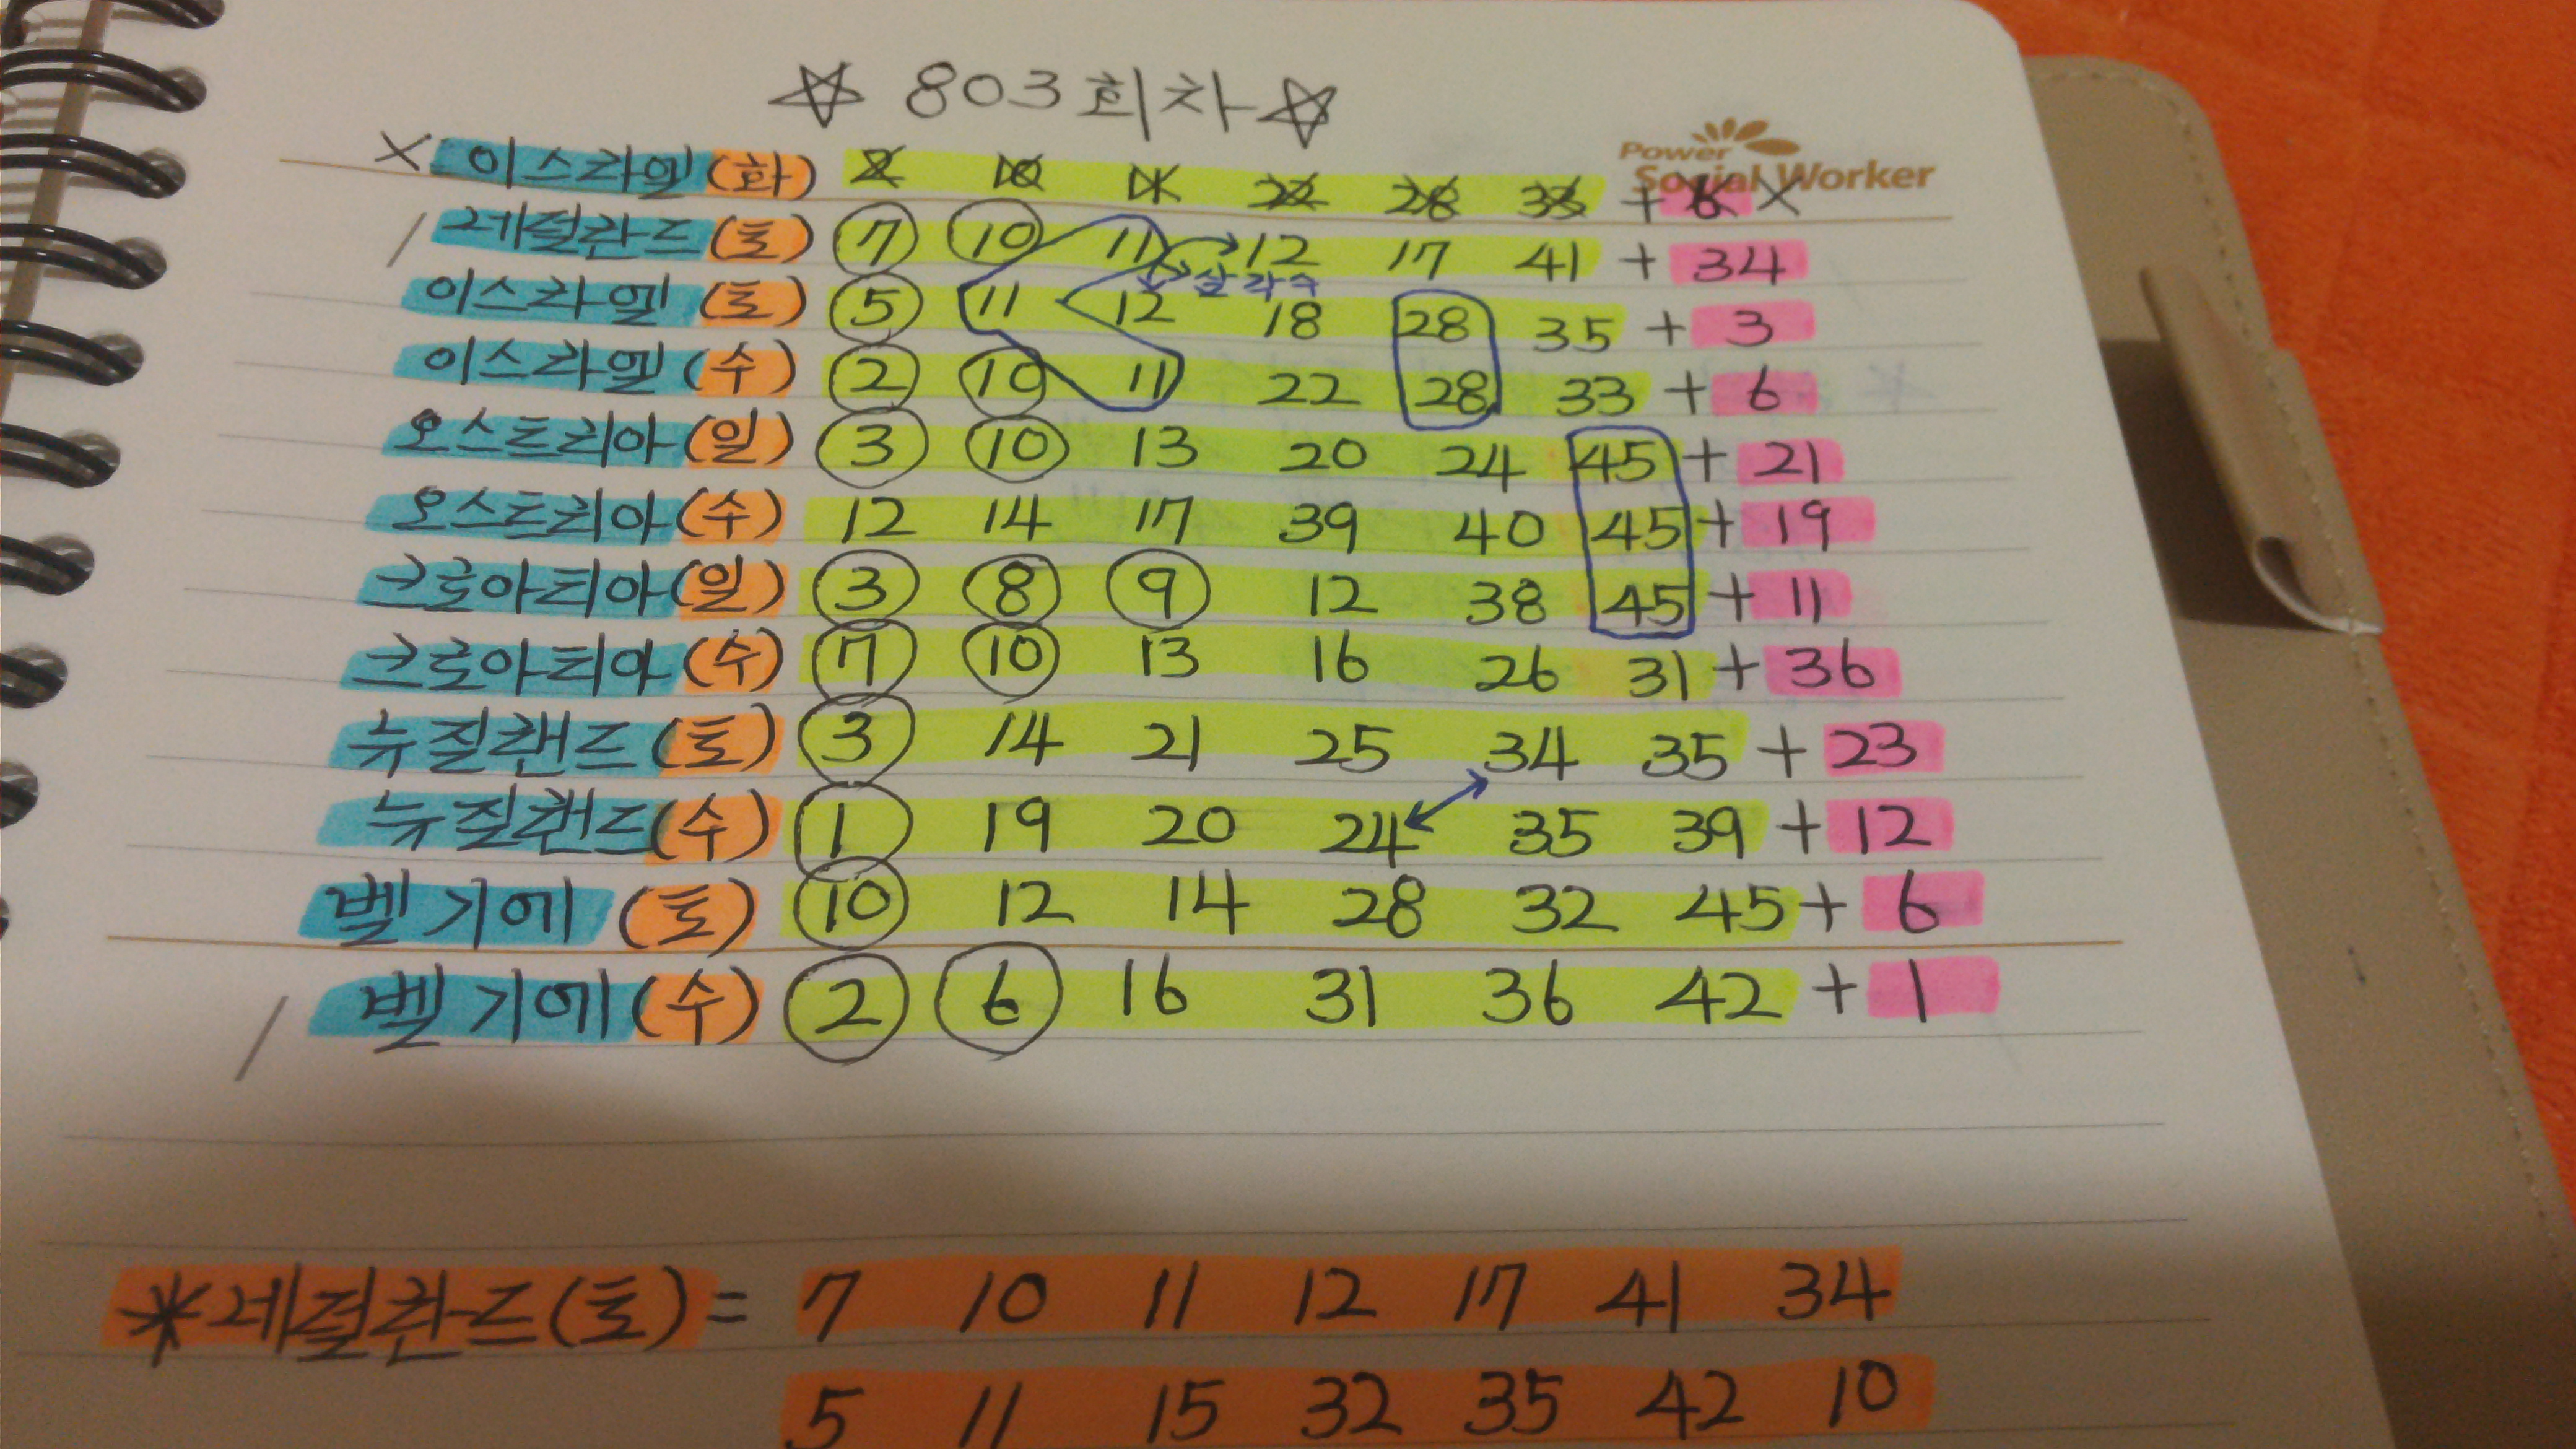 ☆ 803회차 ☆
Power
Social Worker
× 이스라엘 (화) 2 10 11 22 28 33 + 6 ×
/ 네덜란드 (토) 7 10 11 12 17 41 + 34
삼각수
이스라엘 (토) 5 11 12 18 28 35 + 3
이스라엘 (수) 2 10 11 22 28 33 + 6
오스트리아 (일) 3 10 13 20 24 45 + 21
오스트리아 (수) 12 14 17 39 40 45 + 19
크로아티아 (일) 3 8 9 12 38 45 + 11
크로아티아 (수) 7 10 13 16 26 31 + 36
뉴질랜드 (토) 3 14 21 25 34 35 + 23
뉴질랜드 (수) 1 19 20 24 35 39 + 12
벨기에 (토) 10 12 14 28 32 45 + 6
/ 벨기에 (수) 2 6 16 31 36 42 + 1
*네덜란드 (토) = 7 10 11 12 17 41 34
5 11 15 32 35 42 10